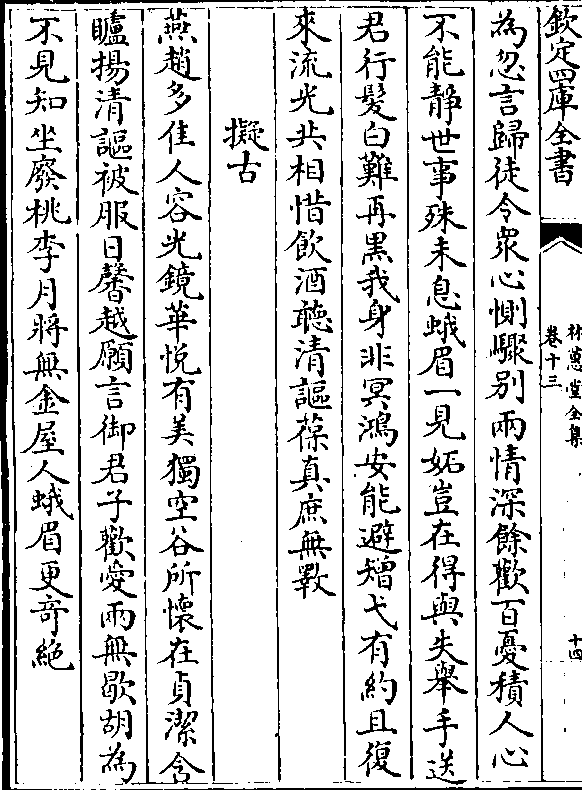 欽定四庫全書
林蕙堂全集
卷十三
十四
為忽言歸徒令衆心惻驟别兩情深餘歡百憂積人心
不能靜世事殊未息蛾眉一見妬豈在得與失舉手送
君行髮白難再黑我身非冥鴻安能避矰弋有約且復
來流光共相惜飲酒聽清謳葆真庶無斁
擬古
燕趙多佳人容光鏡華悅有美獨空谷所懷在貞潔含
矑揚清謳被服日馨越願言御君子歡愛兩無歇胡為
不見知坐廢桃李月將無金屋人蛾眉更奇絶